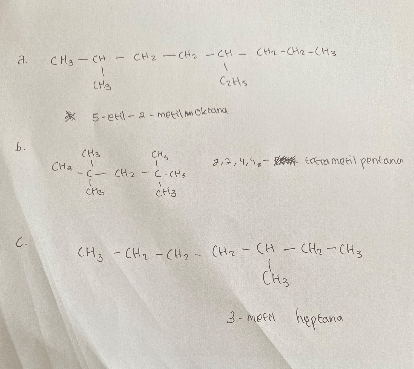 a. CH3 - CH - CH2 - CH2 - CH - CH2 - CH2 - CH3
CH3 C2H5
5-etil-2-metil oktana
b. CH3 CH3
CH3 - C - CH2 - C - CH3 2,2,4,4,- tetrametil pentana
CH3 CH3
c. CH3 - CH2 - CH2 - CH2 - CH - CH2 - CH3
CH3
3-metil heptana